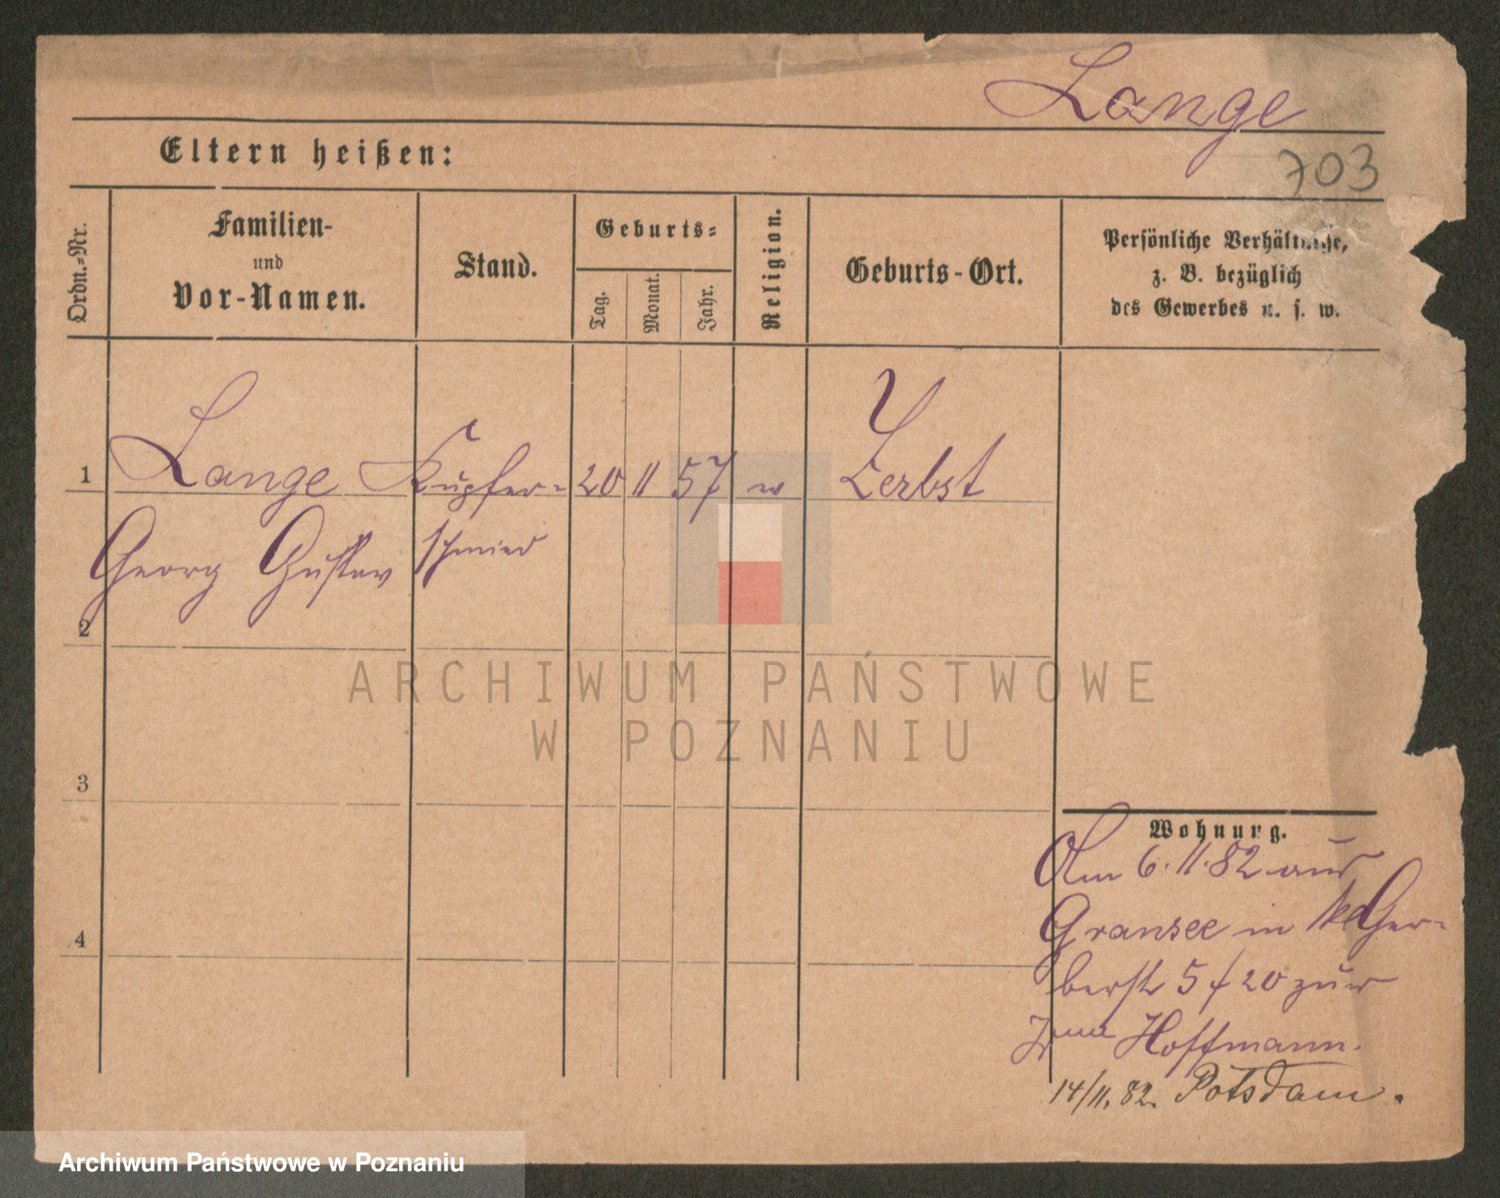 Lange
703
Eltern heißen:
Ordn.-Nr.
Familien-
und
Vor-Namen.
Stand.
Geburts-
Tag.
Monat.
Jahr.
Religion.
Geburts-Ort.
Persönliche Verhältnisse,
z. B. bezüglich
des Gewerbes u. s. w.
1
Lange Kupfer- 20 11 57 Zerbst
Georg Gustav schmied
2
3
4
Wohnung.
Am 6.11.82 aus
Gransee in Kl Ger-
berstr 5 20 zur
Hoffmann.
14/11.82. Potsdam.
ARCHIWUM PAŃSTWOWE
W POZNANIU
Archiwum Państwowe w Poznaniu